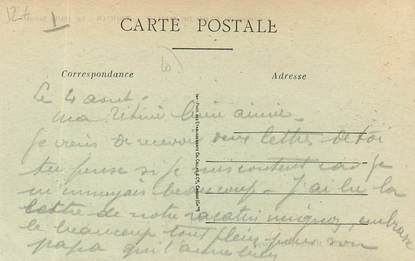 CARTE POSTALE
Correspondance
Adresse
Le 4 aout.
ma bien aimée.
je viens de recevoir deux lettres de toi
tu pense si je suis content car je
m'ennuyais beaucoup. J'ai lu la
lettre de notre mignon, embrasse
le beaucoup tout plein pour son
papa qui l'aime